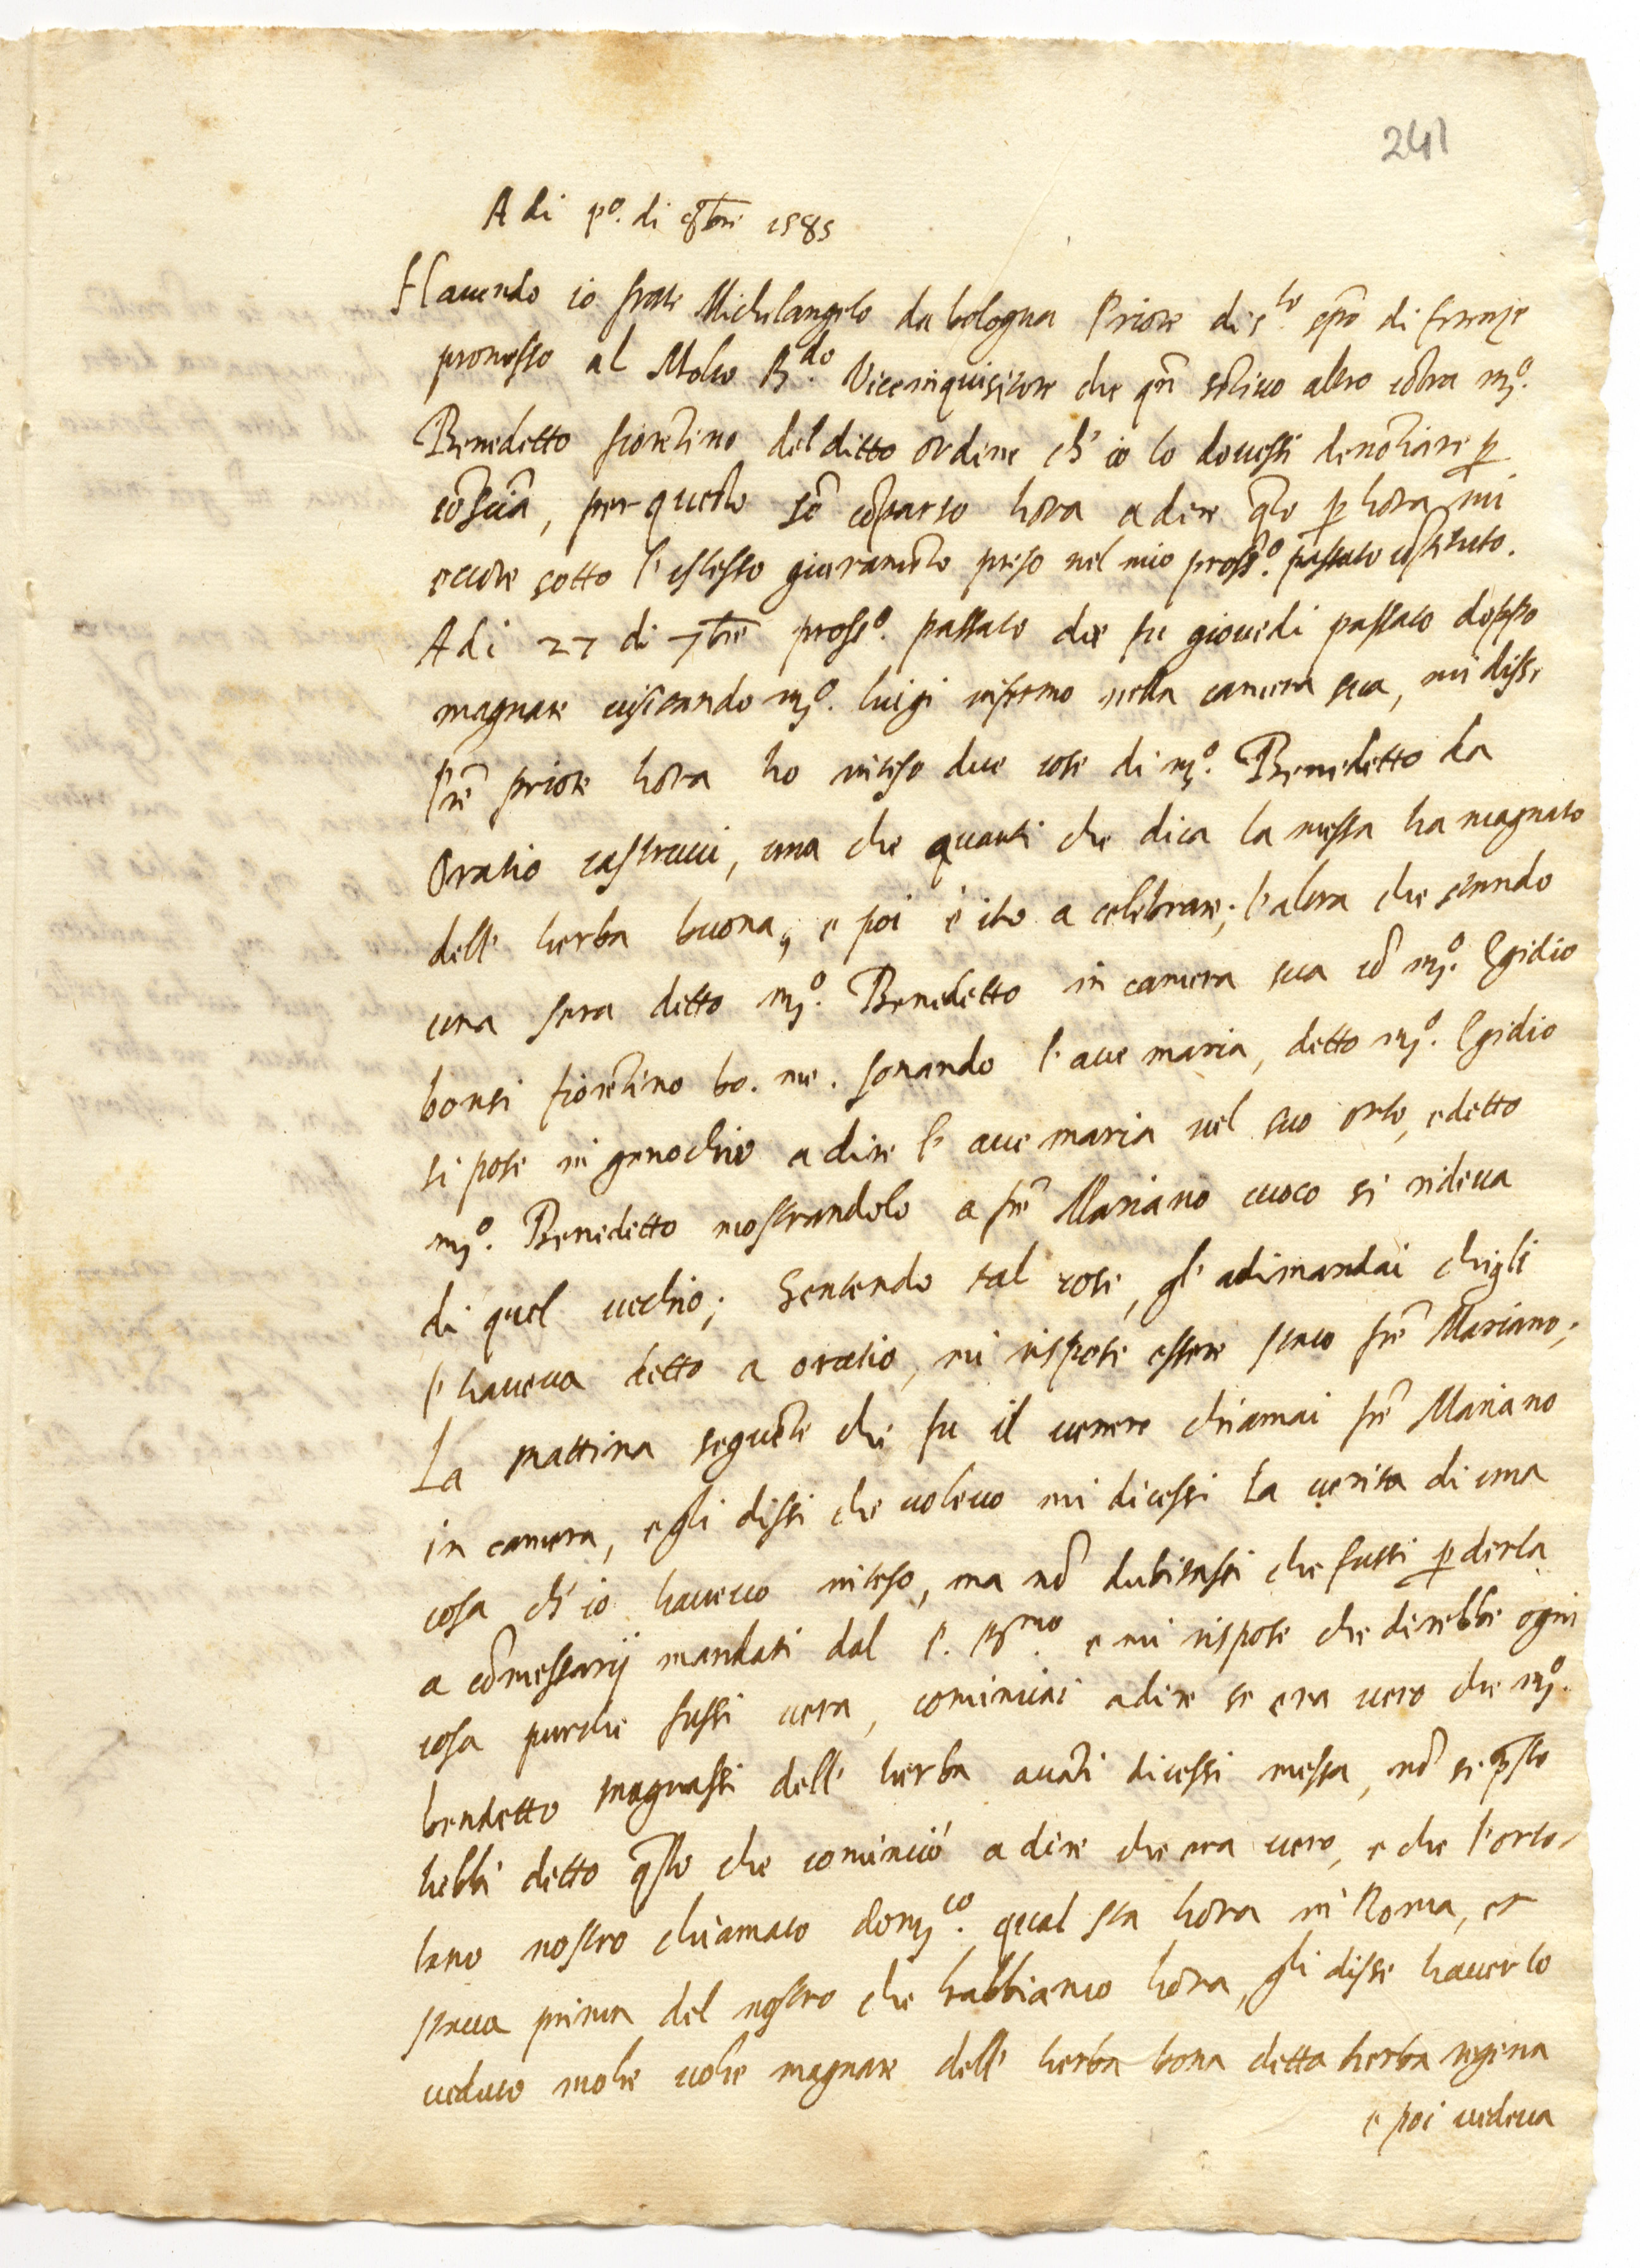 241
A di pº. di 8bre 1585
Havendo io frate Michelangelo da bologna Priore di sto. spō di firenze
promesso al Molto Rdo. Viceinquisitore che qñ sētivo altro cōtra mº.
Benedetto fiorētino del ditto ordine ch' io lo dovessi denōtiare p
cōsciā, per questo sō cōparso hora a dire q̄to p hora mi
occore sotto l'istesso giuramēto preso nel mio prossº. passato cōstituto.
A di 27 di 7bre prossº. passato che fu giovedi passato doppo
magnare visitando mº. luigi infermo nella camera sua, mi disse
Prē priore hora ho inteso due cose di mº. Benedetto da
Oratio castrucci, una che avanti che dica la messa ha magnato
dell' herba buona, e poi è ito a celebrare; l'altra che stando
una sera detto mº. Benedetto in camera sua cō mº. Egidio
bonsi fiorētino bo. me. sonando l'ave maria, detto mº. Egidio
si pose in genochio a dire l' ave maria nel suo orto, e detto
mº. Benedetto mostrandolo a frē Mariano cuoco si rideva
di quel vechio; Sentendo tal cose, gl' adimandai chi gli
l'haveva detto a oratio, mi rispose essere stato frē Mariano;
La mattina seguēte che fu il venere chiamai frē Mariano
in camera, e gli dissi che volevo mi dicessi la verita di una
cosa ch' io havevo inteso, ma nō dubitassi che fussi p derla
a cōmessarij mandati dal P. Rmo. e mi rispose che direbbe ogni
cosa purche fussi vera, cominciai a dire se era vero che mº.
bendetto magnassi dell' herba avāti dicessi messa, nō si p̄sto
hebbi detto q̄sto che cominciò a dire che era vero, e che l'orto-
lano nostro chiamato Domco. qual sta hora in Roma, et
stava prima del nostro che habbiamo hora, gli disse haverlo
veduto molte volte magnare dell' herba bona detta herba regina
e poi vedeva